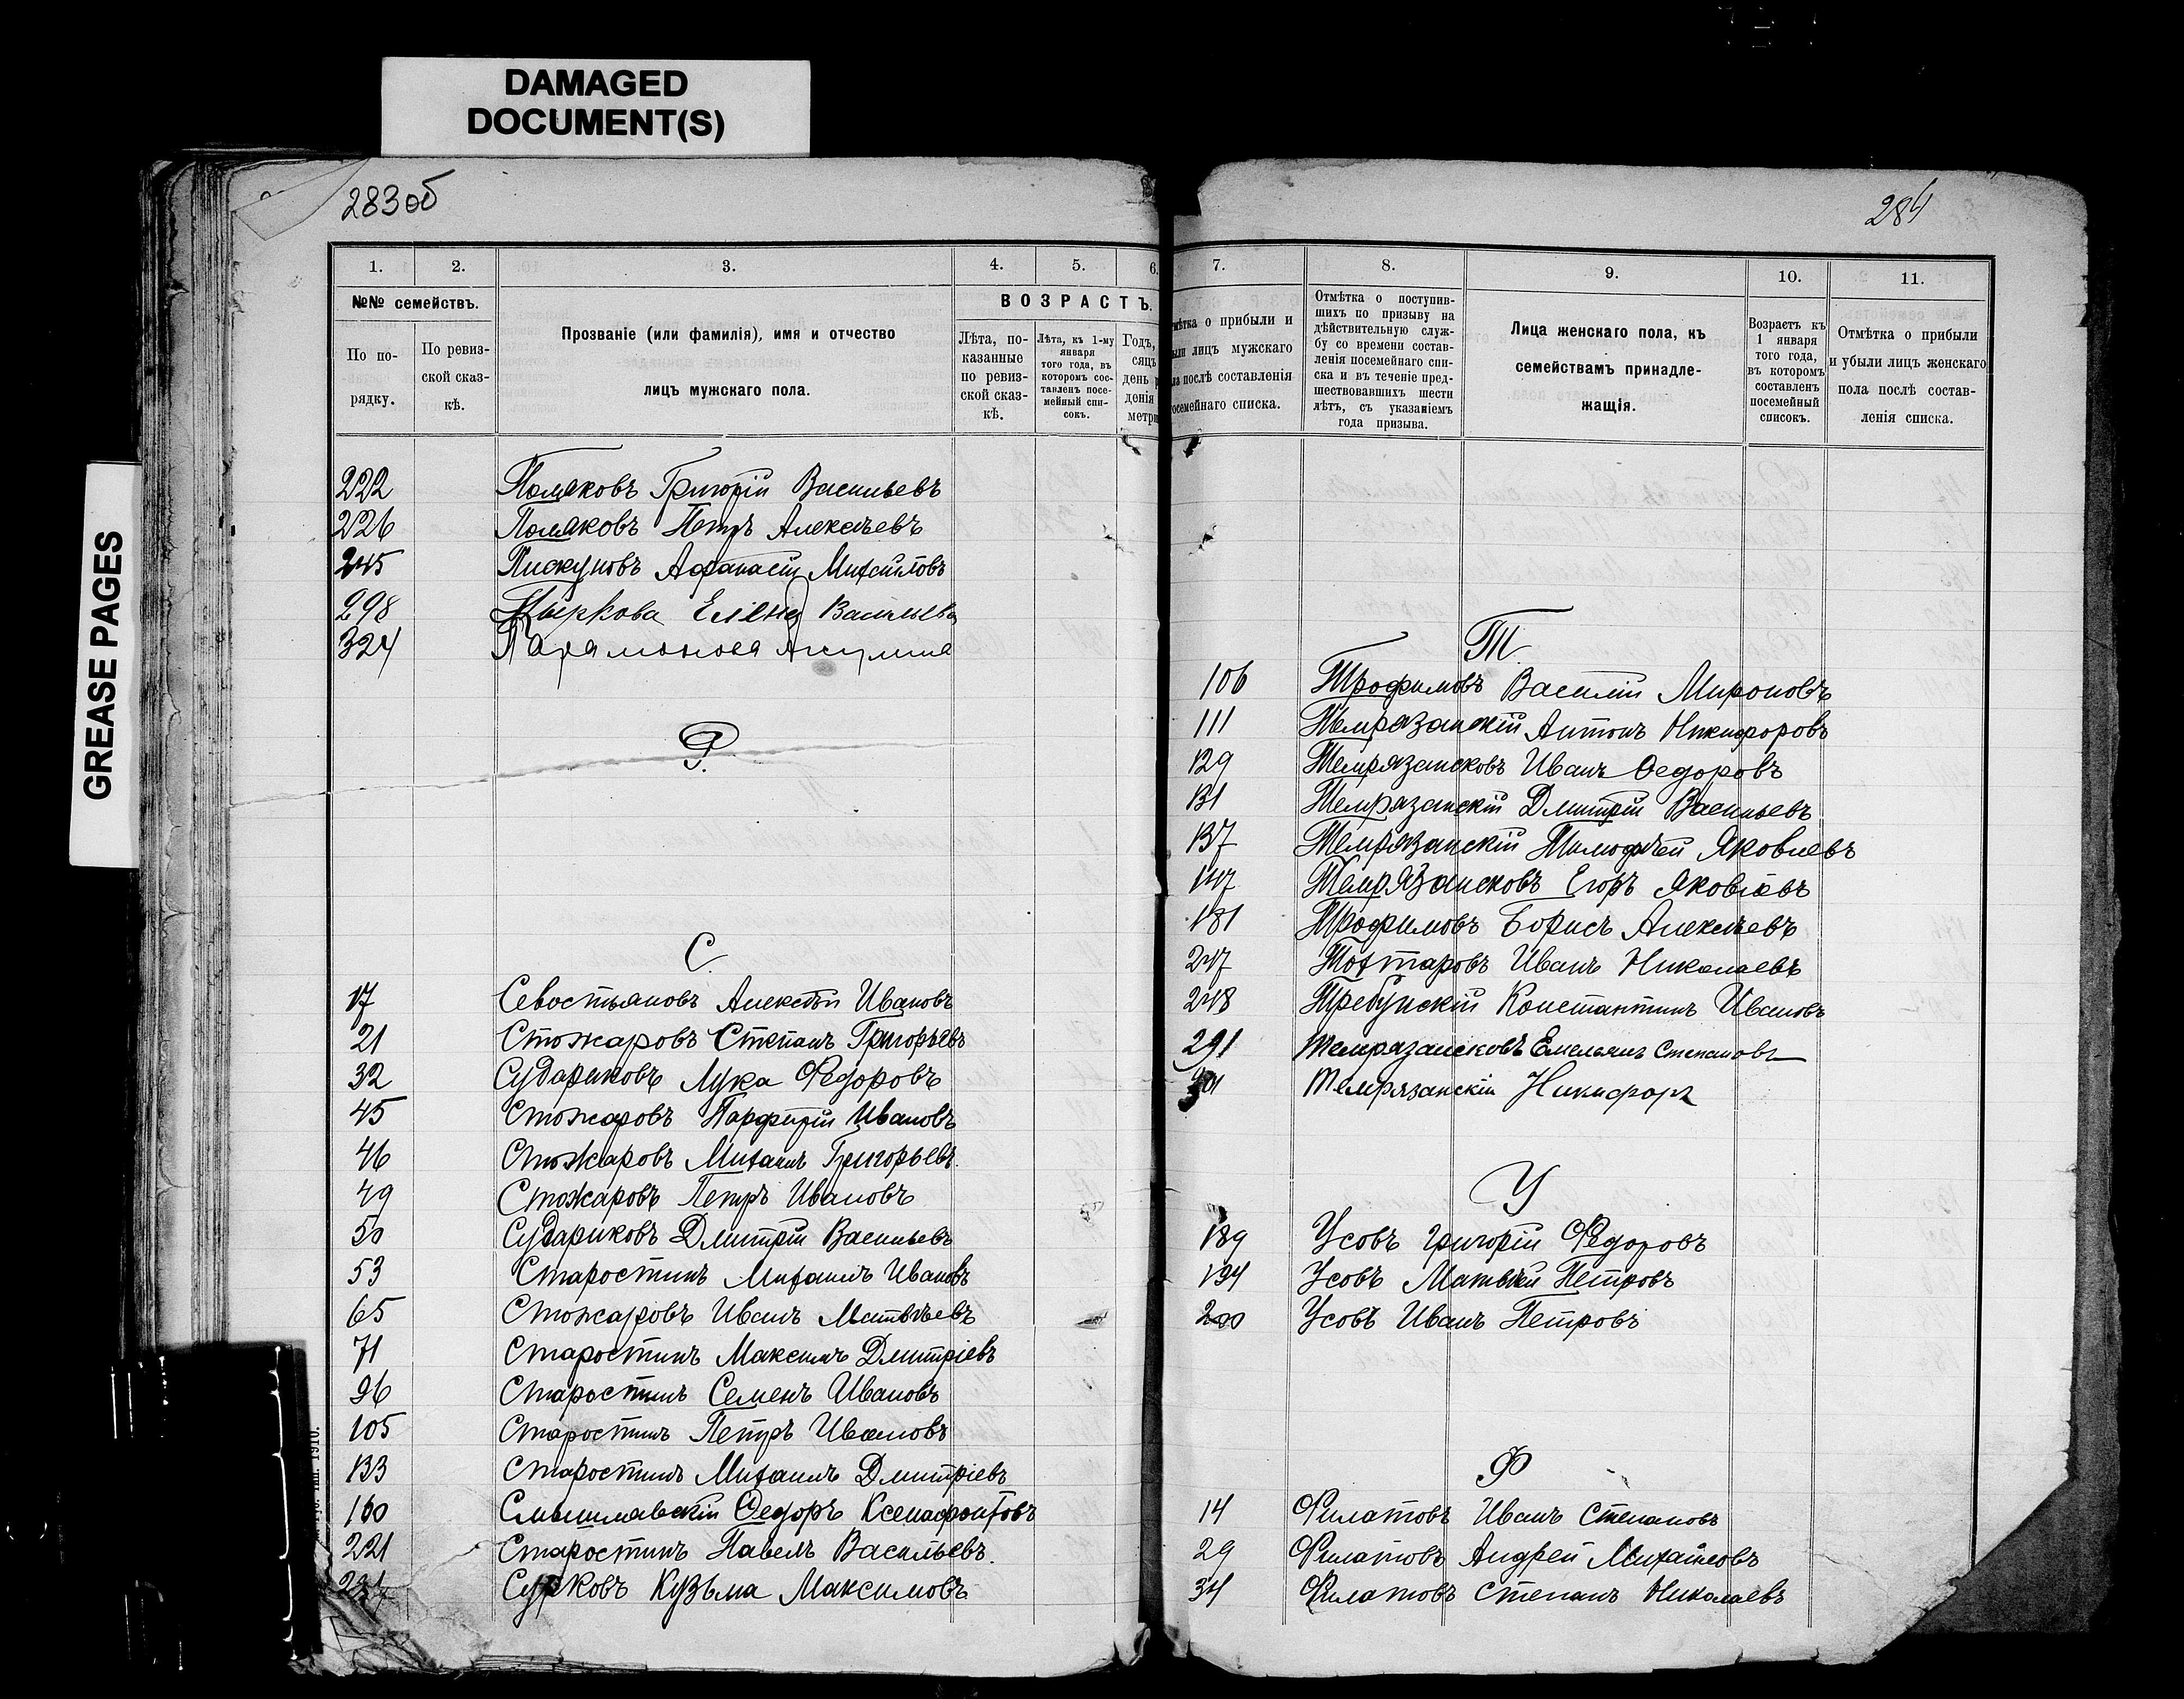 DAMAGED
DOCUMENT(S)
GREASE PAGES
283об
1. 2. 3. 4. 5. 6.
№№ семействъ.
По по-
рядку.
По ревиз-
ской сказ-
кѣ.
Прозваніе (или фамилія), имя и отчество
лицъ мужскаго пола.
ВОЗРАСТЪ.
Лѣта, по-
казанные
по ревиз-
ской сказ-
кѣ.
Лѣта, къ 1-му
января
того года, въ
которомъ сос-
тавленъ посе-
мейный спи-
сокъ.
Годъ,
сяцъ
день р
денія
метри
222 Поляковъ Григорій Васильевъ
226 Поляковъ Петръ Алексѣевъ
245 Пискуновъ Афанасій Михайловъ
298 Пыркова Елена Васильева
324 Парамонова Акулина
Р.
С.
17 Севостьяновъ Алексѣй Ивановъ
21 Стожаровъ Степанъ Григорьевъ
32 Судариковъ Лука Федоровъ
45 Стожаровъ Парфирій Ивановъ
46 Стожаровъ Михаилъ Григорьевъ.
49 Стожаровъ Петръ Ивановъ
50 Судариковъ Дмитрій Васильевъ
53 Старостинъ Михаилъ Ивановъ
65 Стожаровъ Иванъ Матвѣевъ
71 Старостинъ Максимъ Дмитріевъ
96 Старостинъ Семенъ Ивановъ
105 Старостинъ Петръ Ивановъ
133 Старостинъ Михаилъ Дмитріевъ
160 Смышлявскій Ѳедоръ Ксенафонтовъ
221 Старостинъ Павелъ Васильевъ.
234 Сурковъ Кузьма Максимовъ
1910.
284
7. 8. 9. 10. 11.
мѣтка о прибыли и
ыли лицъ мужскаго
ла послѣ составленія
осемейнаго списка.
Отмѣтка о поступив-
шихъ по призыву на
дѣйствительную служ-
бу со времени состав-
ленія посемейнаго спи-
ска и въ теченіе пред-
шествовавшихъ шести
лѣтъ, съ указаніемъ
года призыва.
Лица женскаго пола, къ
семействамъ принадле-
жащія.
Возрастъ къ
1 января
того года,
въ которомъ
составленъ
посемейный
списокъ.
Отмѣтка о прибыли
и убыли лицъ женскаго
пола послѣ состав-
ленія списка.
Т.
106 Трофимовъ Василій Мироновъ
111 Темрязанскій Антонъ Никифоровъ
129 Темрязансковъ Иванъ Ѳедоровъ
131 Темрязанскій Дмитрій Васильевъ
137 Темрязанскій Тимофѣй Яковлевъ
147 Темрязансковъ Егоръ Яковлевъ
181 Трофимовъ Борисъ Алексѣевъ
247 Тохтаровъ Иванъ Николаевъ
248 Требунскій Константинъ Ивановъ
291 Темрязансковъ Емельянъ Степановъ
301 Темрязанскій Никифоръ
У
189 Усовъ Григорій Федоровъ
194 Усовъ Матвѣй Петровъ
200 Усовъ Иванъ Петровъ
Ф
14 Филатовъ Иванъ Степановъ
29 Филатовъ Андрей Михайловъ
34 Филатовъ Степанъ Николаевъ